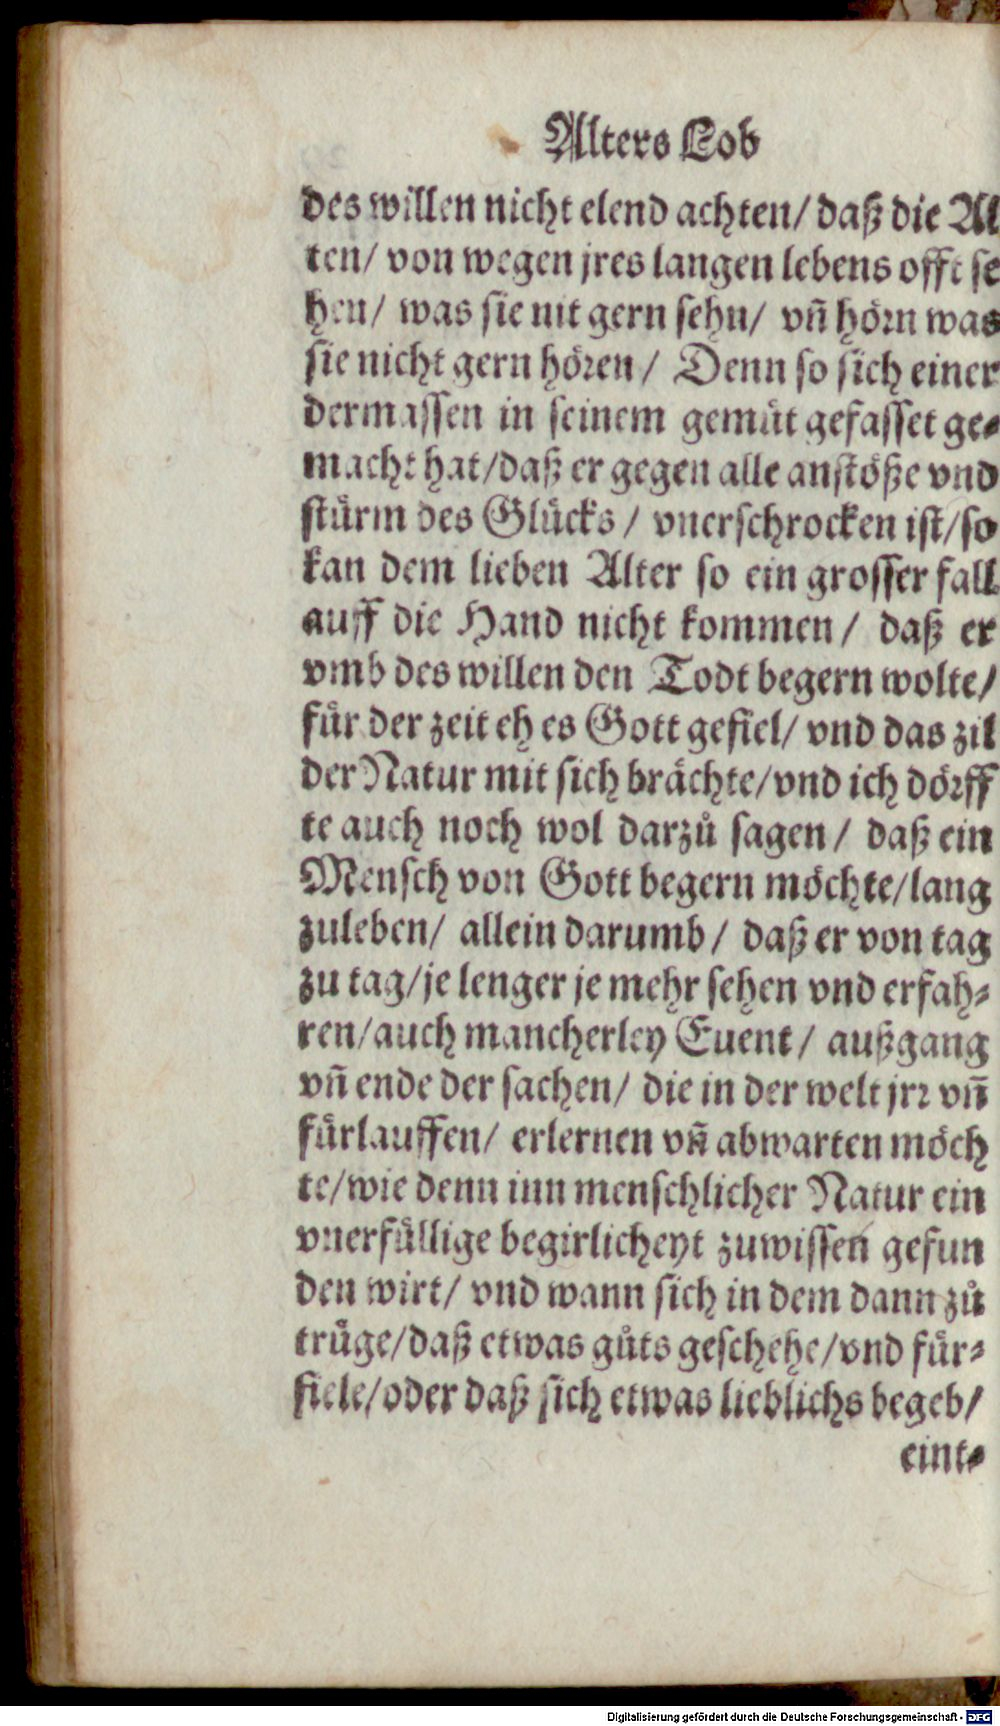 Alters Lob
des willen nicht elend achten/ daß die Al
ten/ von wegen jres langen lebens offt se
hen/ was sie nit gern sehn/ vñ hörn was
sie nicht gern hören/ Denn so sich einer
dermassen in seinem gemüt gefasset ge-
macht hat/daß er gegen alle anstöße vnd
stürm des Glücks/ vnerschrocken ist/so
kan dem lieben Alter so ein grosser fall
auff die Hand nicht kommen/ daß er
vmb des willen den Todt begern wolte/
für der zeit eh es Gott gefiel/ vnd das zil
der Natur mit sich brächte/vnd ich dörff
te auch noch wol darzů sagen/ daß ein
Mensch von Gott begern möchte/lang
zuleben/ allein darumb/ daß er von tag
zu tag/je lenger je mehr sehen vnd erfah-
ren/auch mancherley Euent/ außgang
vñ ende der sachen/ die in der welt jrr vñ
fürlauffen/ erlernen vñ abwarten möch
te/wie denn inn menschlicher Natur ein
vnerfüllige begirlicheyt zuwissen gefun
den wirt/ vnd wann sich in dem dann zů
trüge/daß etwas gůts geschehe/vnd für-
fiele/oder daß sich etwas lieblichs begeb/
eint-
Digitalisierung gefördert durch die Deutsche Forschungsgemeinschaft - DFG